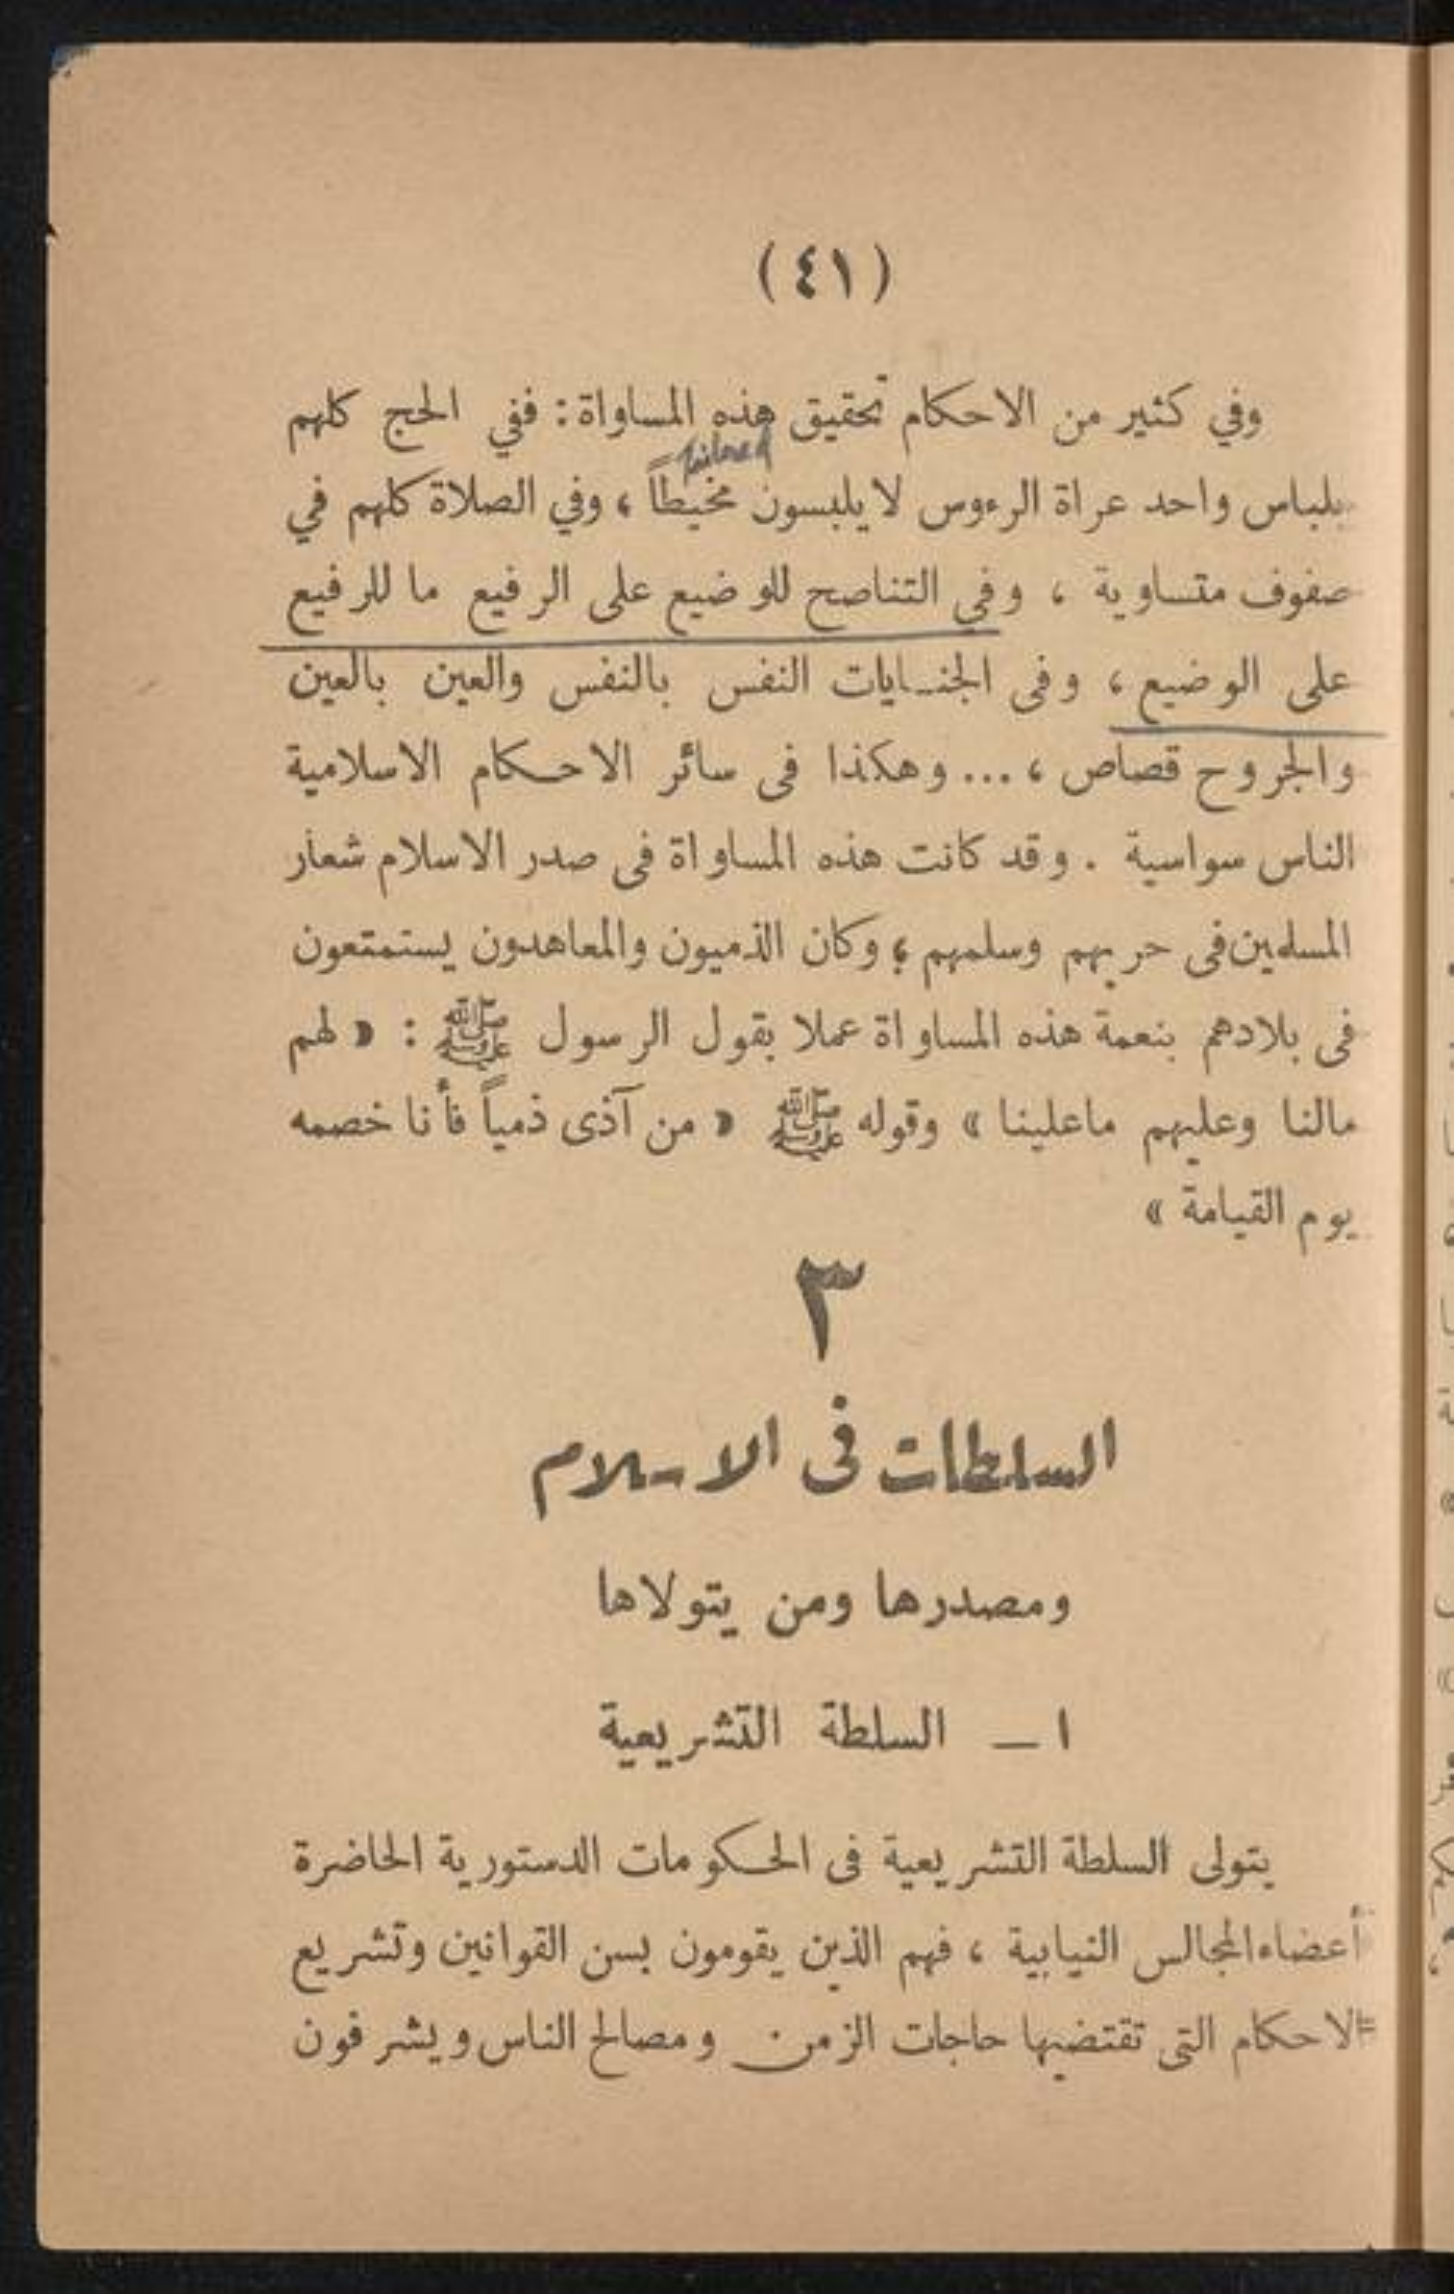 (٤١)
وفي كثير من الاحكام تحقيق هذه المساواة : ففي الحج كلهم
tailored
بلباس واحد عراة الرءوس لا يلبسون مخيطاً ، وفي الصلاة كلهم في
صفوف متساوية ، وفي التناصح للوضيع على الرفيع ما للرفيع
على الوضيع ، وفى الجنايات النفس بالنفس والعين بالعين
والجروح قصاص ، ... وهكذا فى سائر الاحكام الاسلامية
الناس سواسية . وقد كانت هذه المساواة فى صدر الاسلام شعار
المسلمين فى حربهم وسلمهم ؛ وكان الذميون والمعاهدون يستمتعون
فى بلادهم بنعمة هذه المساواة عملا بقول الرسول ﷺ : « لهم
مالنا وعليهم ماعلينا » وقوله ﷺ « من آذى ذمياً فأنا خصمه
يوم القيامة »
٣
السلطات فى الاسلام
ومصدرها ومن يتولاها
١ — السلطة التشريعية
يتولى السلطة التشريعية فى الحكومات الدستورية الحاضرة
أعضاء المجالس النيابية ، فهم الذين يقومون بسن القوانين وتشريع
الاحكام التى تقتضيها حاجات الزمن ومصالح الناس ويشرفون